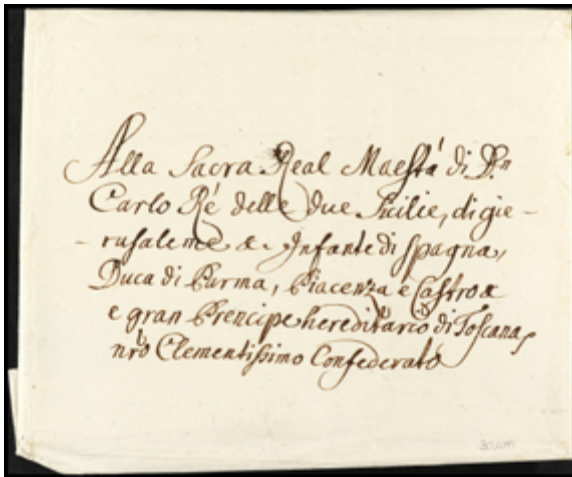 Alla Sacra Real Maestà di Dⁿ
Carlo Rè delle due Sicilie, di gie-
-rusaleme &c Infante di Spagna,
Duca di Parma, Piacenza e Castro &c
e gran Prencipe hereditario di Toscana,
nr̃o Clementissimo Confederato